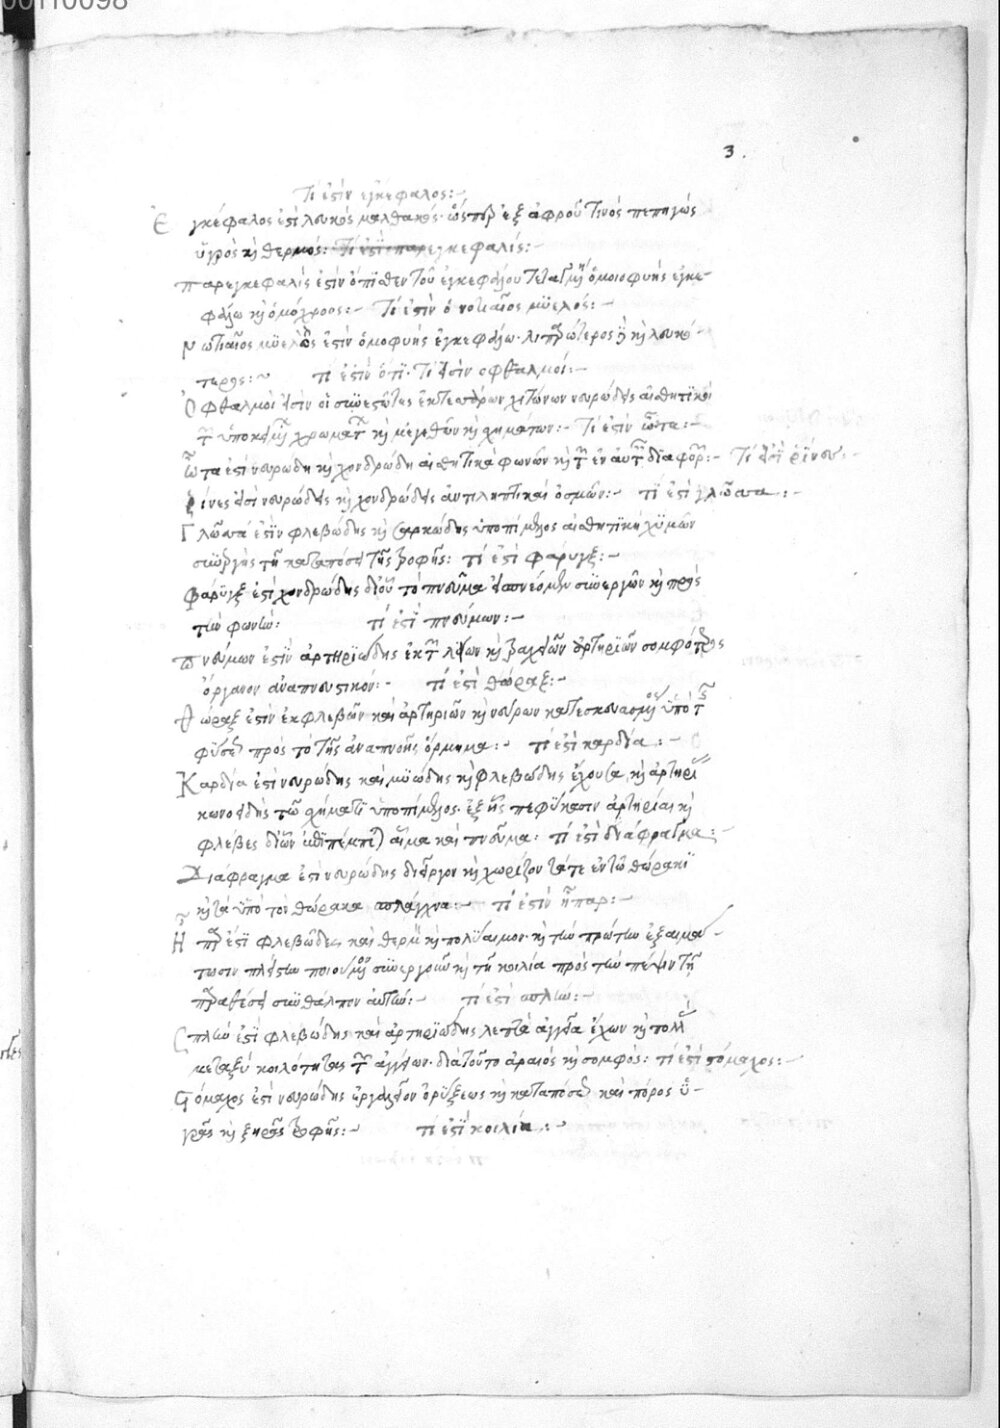 00110098
3.
Τί ἐστὶν ἐγκέφαλος:-
Ἐγκέφαλος ἐστὶ λευκὸς μαλθακός· ὥσπερ ἐξ ἀφροῦ τινὸς πεπηγώς
ὑγρὸς κὴ θερμός: Τί ἐστὶ παρεγκεφαλίς:-
παρεγκεφαλὶς ἐστὶν ὄπιθεν τοῦ ἐγκεφάλου τεταγμένη ὁμοιοφυὴς ἐγκε-
φάλω κὴ ὁμόχροος:- Τί ἐστὶν ὁ νοτιαῖος μϋελός:-
Νωτιαῖος μϋελὸς ἐστὶν ὁμοφυὴς ἐγκεφάλω· λιπαρώτερος κὴ λευκό
τερος:~ τί ἐστὶν ὅτι· Τί εἰσὶν ὀφθαλμοί:-
Ὀφθαλμοὶ εἰσὶν οἱ συνεστῶτες ἐκ τεσσάρων χιτώνων νευρώδεις αἰσθητικοὶ
τῶν ὑποκειμένων χρωμάτων κὴ μεγεθῶν κὴ σχημάτων:- Τί ἐστὶν ὦτα:-
Ὦτα ἐστὶ νευρώδη κὴ χονδρώδη αἰσθητικὰ φωνῶν κὴ τῶν ἐν αὐταῖς διαφορῶν:- Τί ἐστὶ ῥίνες:-
Ῥίνες εἰσὶ νευρώδεις κὴ χονδρώδεις ἀντιληπτικαὶ ὀσμῶν:- τί ἐστὶ γλῶσσα:-
Γλῶσσά ἐστὶν φλεβώδης κὴ σαρκώδης ὑποπίμελος αἰσθητικὴ χϋμῶν
συνεργὴς τῆ καταπόσει τῆς τροφῆς: τί ἐστὶ φάρυγξ:-
Φάρϋγξ ἐστὶ χονδρώδης δι' οὗ τὸ πνεῦμα εἰσπνεόμενον συνεργῶν κὴ πρὸς
τὴν φωνήν: τί ἐστὶ πνεύμων:-
πνεύμων ἐστὶν ἀρτηριώδης ἐκ τῶν λείων κὴ βραχειῶν ἀρτηριῶν σομφότερος
ὄργανον ἀναπνευστικόν:- τί ἐστὶ θώραξ:-
Θώραξ ἐστὶν ἐκ φλεβῶν καὶ ἀρτηριῶν κὴ νεύρων κατεσκευασμένος ὑπὸ τῆς
φύσεως πρὸς τὸ τῆς ἀναπνοῆς ὅρμημα:- τί ἐστὶ καρδία:-
Καρδία ἐστὶ νευρώδης καὶ μϋώδης κὴ φλεβώδης ἔχουσα κὴ ἀρτηρίας
κωνοειδὴς τῶ σχήματι ὑποπίμελος· ἐξ ἧς πεφύκασιν ἀρτηρίαι κὴ
φλέβες δι' ὧν ἐπιπέμπεται αἷμα καὶ πνεῦμα: τί ἐστὶ διάφραγμα:-
Διάφραγμα ἐστὶ νευρώδης διεῖργον κὴ χωρίζον τά τε ἐν τῶ θώρακι
κὴ τὰ ὑπὸ τὸν θώρακα σπλάγχνα:- τί ἐστὶν ἧπαρ:-
Ἧπαρ ἐστὶ φλεβῶδες καὶ θερμὸν κὴ πολύαιμον· κὴ τὴν πρώτην ἐξαιμά-
τωσιν πλείστην ποιούμενον συνεργοῦν κὴ τῆ κοιλία πρὸς τὴν πέψιν τῆ
παραθέσει συνθάλπον αὐτήν:- τί ἐστὶ σπλήν:-
Σπλὴν ἐστὶ φλεβώδης καὶ ἀρτηριώδης λεπτὰ ἀγγεῖα ἔχων κὴ πολλὰς
μεταξὺ κοιλότητας τῶν ἀγγείων· διὰ τοῦτο ἀραιὸς κὴ σομφός: τί ἐστὶ στόμαχος:-
Στόμαχος ἐστὶ νευρώδης ἐργαλεῖον ὀρέξεως κὴ καταπόσεως καὶ πόρος ὑ-
γρᾶς κὴ ξηρᾶς τροφῆς:- τί ἐστὶ κοιλία:-